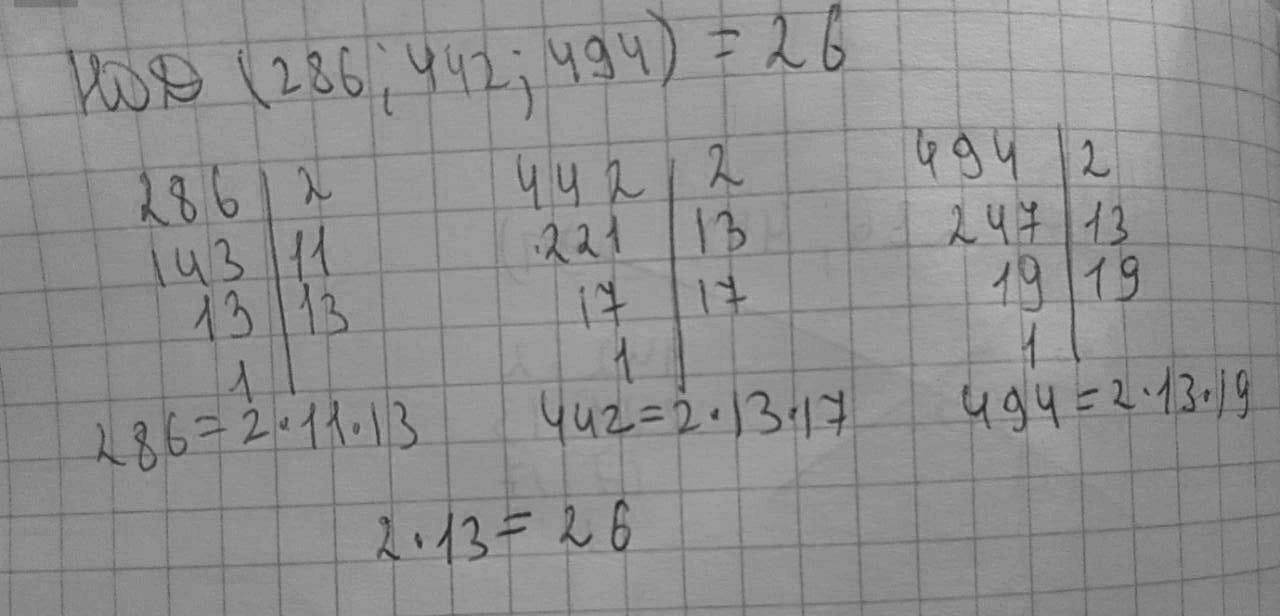 НОД (286; 442; 494) = 26
286 | 2
143 | 11
13 | 13
1 |
442 | 2
221 | 13
17 | 17
1 |
494 | 2
247 | 13
19 | 19
1 |
286 = 2·11·13
442 = 2·13·17
494 = 2·13·19
2·13 = 26